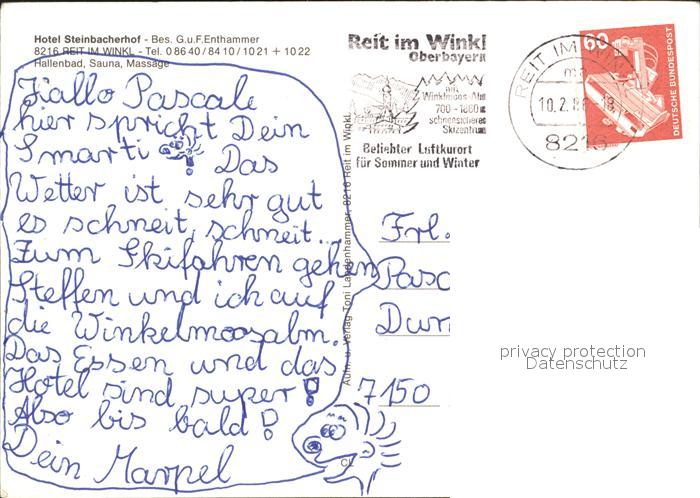 Hotel Steinbacherhof - Bes. G.u.F. Enthammer
8216 REIT IM WINKL - Tel. 0 86 40 / 84 10 / 10 21 + 10 22
Hallenbad, Sauna, Massage
Hallo Pascale
hier spricht Dein
Smarti Das
Wetter ist sehr gut
es schneit, schneit...
Zum Skifahren gehen
Steffen und ich auf
die Winkelmoosalm.
Das Essen und das
Hotel sind super!
Also bis bald!
Dein Marpel
Reit im Winkl
Oberbayern
mit
Winklmoos-Alm
700 - 1800 m
schneesicheres
Skizentrum
Beliebter Luftkurort
für Sommer und Winter
REIT IM WINKL
10.2.86-18
8216
60
DEUTSCHE BUNDESPOST
Aufn. u. Verlag Toni Landenhammer, 8216 Reit im Winkl
Frl.
Pasc
Dur
7150
privacy protection
Datenschutz